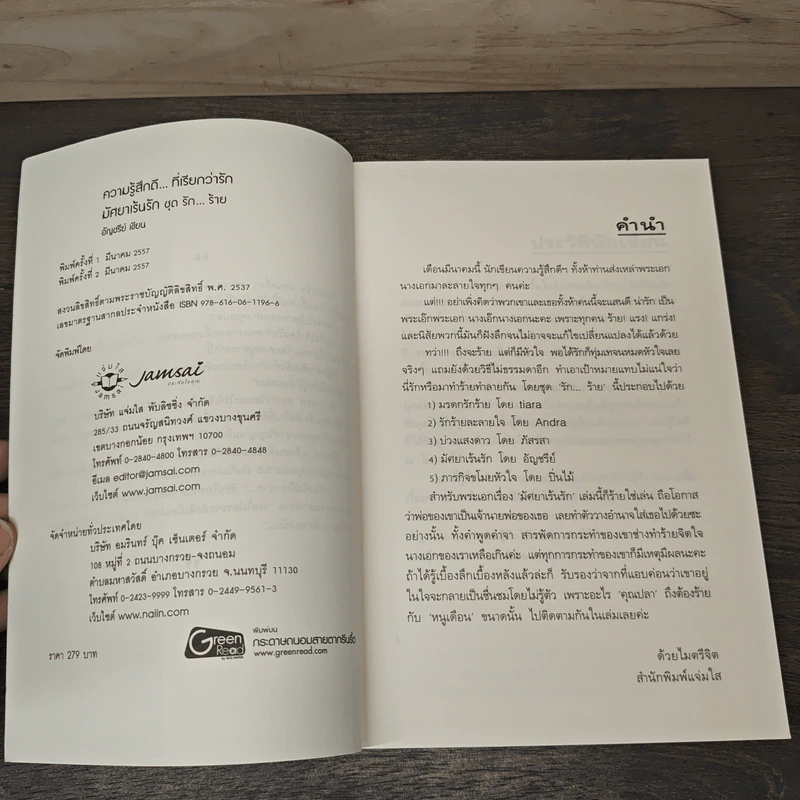 ความรู้สึกดี... ที่เรียกว่ารัก
มัศยาเร้นรัก ชุด รัก... ร้าย
อัญชรีย์ เขียน
พิมพ์ครั้งที่ 1 มีนาคม 2557
พิมพ์ครั้งที่ 2 มีนาคม 2557
สงวนลิขสิทธิ์ตามพระราชบัญญัติลิขสิทธิ์ พ.ศ. 2537
เลขมาตรฐานสากลประจำหนังสือ ISBN 978-616-06-1196-6
จัดพิมพ์โดย
jamsai
บริษัท แจ่มใส พับลิชชิ่ง จำกัด
285/33 ถนนจรัญสนิทวงศ์ แขวงบางขุนศรี
เขตบางกอกน้อย กรุงเทพฯ 10700
โทรศัพท์ 0-2840-4800 โทรสาร 0-2840-4848
อีเมล editor@jamsai.com
เว็บไซต์ www.jamsai.com
จัดจำหน่ายทั่วประเทศโดย
บริษัท อมรินทร์ บุ๊ค เซ็นเตอร์ จำกัด
108 หมู่ที่ 2 ถนนบางกรวย-จงถนอม
ตำบลมหาสวัสดิ์ อำเภอบางกรวย จ.นนทบุรี 11130
โทรศัพท์ 0-2423-9999 โทรสาร 0-2449-9561-3
เว็บไซต์ www.naiin.com
ราคา 279 บาท
Green Read
พิมพ์บน
กระดาษถนอมสายตากรีนรี้ด
www.greenread.com
คำนำ
เดือนมีนาคมนี้ นักเขียนความรู้สึกดีๆ ทั้งห้าท่านส่งเหล่าพระเอก
นางเอกมาละลายใจทุกๆ คนค่ะ
แต่!!! อย่าเพิ่งคิดว่าพวกเขาและเธอทั้งห้าคนนี้จะแสนดี น่ารัก เป็น
พระเอ๊กพระเอก นางเอ๊กนางเอกนะคะ เพราะทุกคน ร้าย! แรง! แกร่ง!
และนิสัยพวกนี้มันก็ฝังลึกจนไม่อาจจะแก้ไขเปลี่ยนแปลงได้แล้วด้วย
ทว่า!!! ถึงจะร้าย แต่ก็มีหัวใจ พอได้รักก็ทุ่มเทจนหมดหัวใจเลย
จริงๆ แถมยังด้วยวิธีไม่ธรรมดาอีก ทำเอาเป้าหมายแทบไม่แน่ใจว่า
นี่รักหรือมาทำร้ายทำลายกัน โดยชุด 'รัก... ร้าย' นี้ประกอบไปด้วย
1) มรดกรักร้าย โดย tiara
2) รักร้ายละลายใจ โดย Andra
3) บ่วงแสงดาว โดย ภัสรสา
4) มัศยาเร้นรัก โดย อัญชรีย์
5) ภารกิจขโมยหัวใจ โดย ปิ่นไม้
สำหรับพระเอกเรื่อง 'มัศยาเร้นรัก' เล่มนี้ก็ร้ายใช่เล่น ถือโอกาส
ว่าพ่อของเขาเป็นเจ้านายพ่อของเธอ เลยทำตัววางอำนาจใส่เธอไปด้วยซะ
อย่างนั้น ทั้งคำพูดคำจา สารพัดการกระทำของเขาช่างทำร้ายจิตใจ
นางเอกของเราเหลือเกินค่ะ แต่ทุกการกระทำของเขาก็มีเหตุมีผลนะคะ
ถ้าได้รู้เบื้องลึกเบื้องหลังแล้วล่ะก็ รับรองว่าจากที่แอบค่อนว่าเขาอยู่
ในใจจะกลายเป็นชื่นชมโดยไม่รู้ตัว เพราะอะไร 'คุณปลา' ถึงต้องร้าย
กับ 'หนูเดือน' ขนาดนั้น ไปติดตามกันในเล่มเลยค่ะ
ด้วยไมตรีจิต
สำนักพิมพ์แจ่มใส